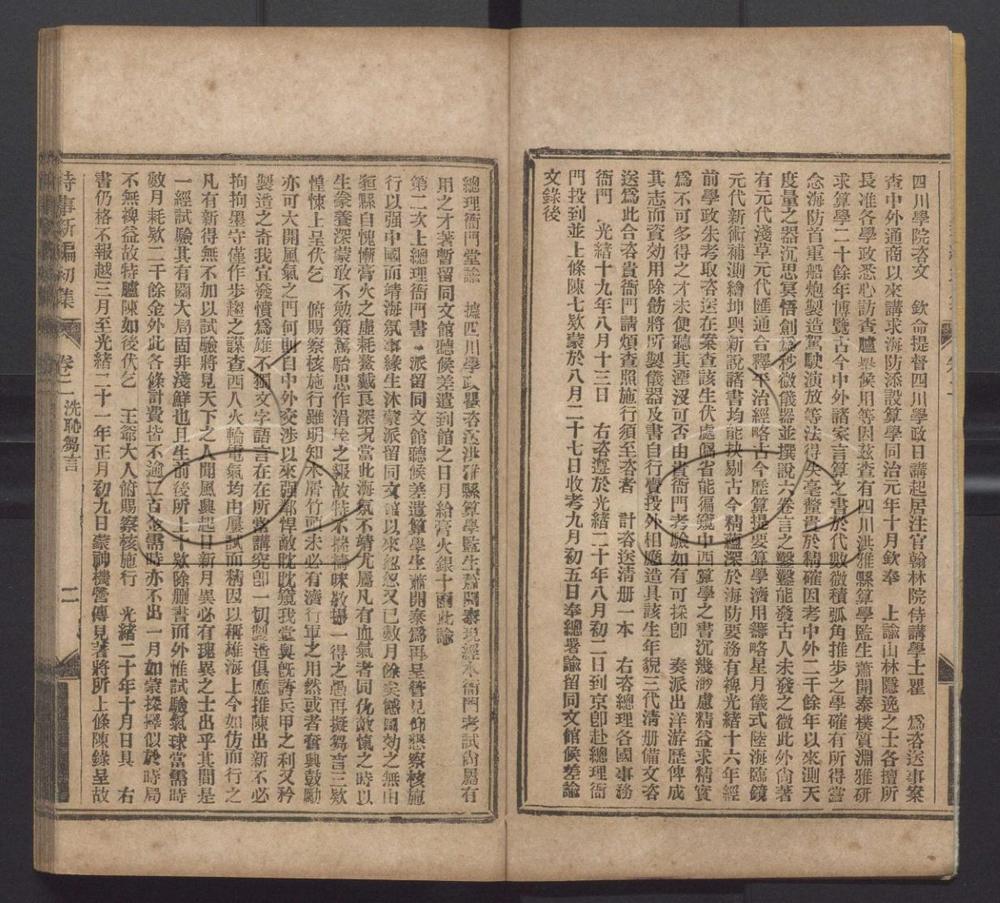 四川學院咨文　欽命提督四川學政日講起居注官翰林院侍講學士瞿　爲咨送事案
查中外通商以來講求海防添設算學同治元年十月欽奉　上諭山林隱逸之士各擅所
長准各學政悉心訪查臚舉候用等因茲查有四川洪雅縣算學監生蕭開泰樸質淵雅研
求算學二十餘年博覽古今中外諸家言算之書於代數微積弧角推步之學確有所得嘗
念海防首重船炮製造駕駛演放等法得失毫釐貴於精確因考中外二千餘年以來測天
度量之器沉思冥悟創爲秒微儀器並撰說六卷言之鑿鑿能發古人未發之微此外尙著
有元代淺草元代匯通合釋平治經略古今歷算提要算學濟用籌略星月儀式陸海臨鏡
元代新術補測繪坤輿新說諸書均能抉剔古今精蘊深於海防要務有裨光緒十六年經
前學政朱考取咨送在案查該生伏處偏省能徧窺中西算學之書沉幾渺慮精益求精實
爲不可多得之才未便聽其湮沒可否由貴衙門考驗如有可採卽　奏派出洋游歷俾成
其志而資効用除飭將所製儀器及書自行賫投外相應造具該生年貌三代清册備文咨
送爲此合咨貴衙門請煩查照施行須至咨者　計咨送清册一本　右咨總理各國事務
衙門　光緒十九年八月十三日　右咨遵於光緒二十年八月初二日到京卽赴總理衙
門投到並上條陳七欵蒙於八月二十七日收考九月初五日奉總署諭留同文館候差諭
文錄後
總理衙門堂諭　據四川學政瞿咨送洪雅縣算學監生蕭開泰現經本衙門考試尙屬有
用之才著暫留同文館聽候差遣到館之日月給膏火銀十兩此諭
第二次上總理衙門書　派留同文館聽候差遣算學生蕭開泰爲再呈管見仰懇察核施
行以強中國而靖海氛事緣生沐蒙派留同文館以來忽忽又已數月餘矣感圖効之無由
循縣自愧慚膏火之虛耗蓋戴良深況當此海氛不靖尤屬凡有血氣者同仇敵愾之時以
生豢養深蒙敢不勉策駑駘思作涓埃之報故特不揣檮昧敬攄一得之愚再擬芻言三欵
惶悚上呈伏乞　俯賜察核施行雖明知木屑竹頭未必有濟行軍之用然或者奮興鼓勵
亦可大開風氣之門何則自中外交涉以來強鄰悍敵眈眈窺我堂奧旣誇兵甲之利又矜
製造之奇我宜發憤爲雄不獨文字語言在在所當講究卽一切製造俱應推陳出新不必
拘拘墨守僅作步趨之謀查西人火輪電氣均由屢試而精因以稱雄海上今如仿而行之
凡有新得無不加以試驗將見天下之人聞風興起日新月異必有瑰異之士出乎其間是
一經試驗其有關大局固非淺鮮也且生前後所上十欵除臚書而外惟試驗氣球當需時
數月耗欵二千餘金外此各條計費皆不逾二百金需時亦不出一月如蒙採擇似於時局
不無裨益故特臚陳如後伏乞　王爺大人俯賜察核施行　光緒二十年十月日具　右
書仍格不報越三月至光緒二十一年正月初九日蒙神機營傳見著將所上條陳錄呈故
時事新編初集　卷二　洗恥芻言　二